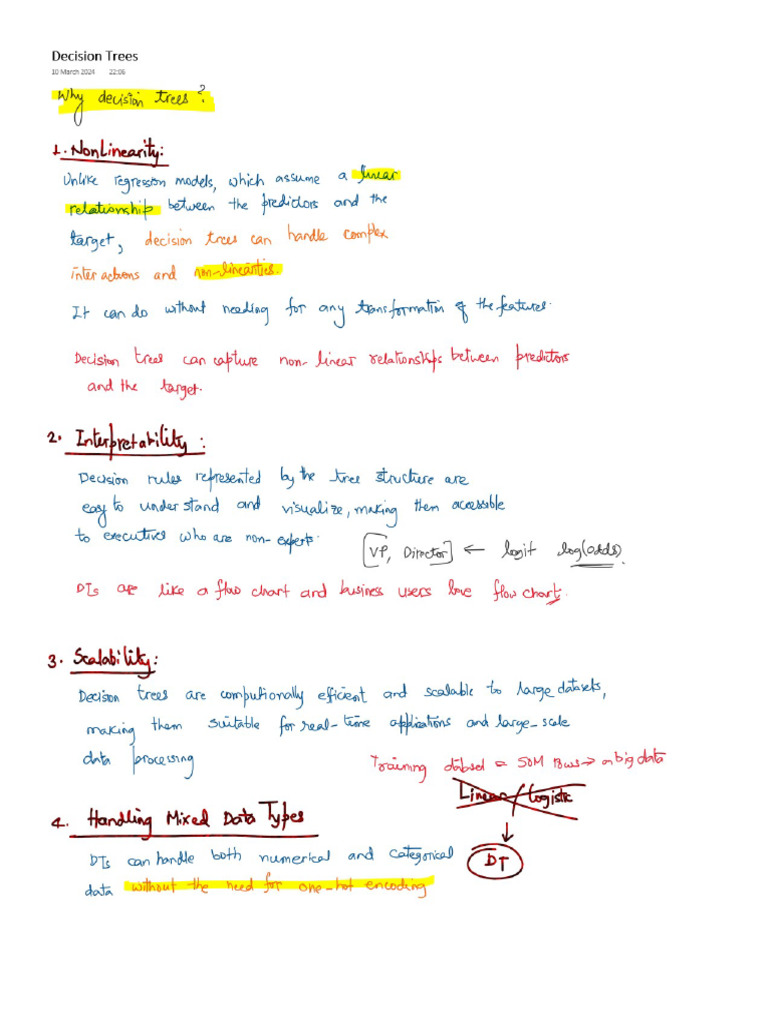 Decision Trees
10 March 2024 22:06
Why decision trees?
1. Nonlinearity:
Unlike regression models, which assume a linear
relationship between the predictors and the
target, decision trees can handle complex
interactions and non-linearities.
It can do without needing for any transformation of the features.
Decision trees can capture non-linear relationships between predictors
and the target.
2. Interpretability:
Decision rules represented by the tree structure are
easy to understand and visualize, making them accessible
to executives who are non-experts.
[VP, Director] ← logit log(odds).
DTs are like a flow chart and business users love flow chart.
3. Scalability:
Decision trees are computionally efficient and scalable to large datasets,
making them suitable for real-time applications and large-scale
data processing
Training dataset = 50M rows → big data
Linear/logistic
4. Handling Mixed Data Types
DT
DTs can handle both numerical and categorical
data without the need for one-hot encoding